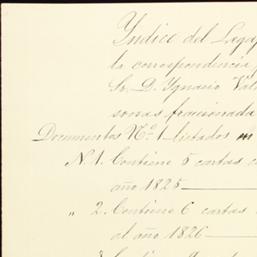 Yndice del Lega
la correspondencia
Sr. D. Ygnacio Val
sonas fraccionada
Documentos Nº. 1 listados en
N. 1. Contiene 5 cartas c
año 1825
" 2. Contiene 6 cartas
al año 1826